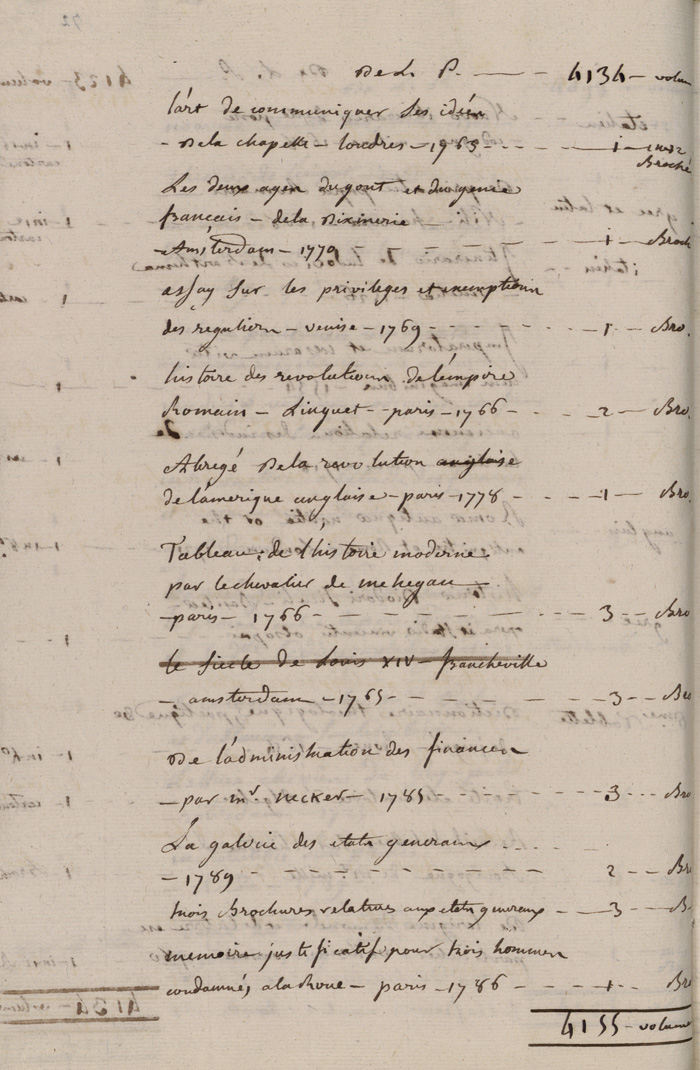 De L. P. — 4134 - volum
l'art de communiquer ses idées
- De la chapelle - londres - 1763 - - - 1 - in-12 Broché
Les deux ages du gout et du genie
français - de la Dixmerie
- Amsterdam - 1770 - - - 1 - Broch
assay sur les privileges et exemptions
des reguliers - venise - 1769 - - - 1 - Bro.
histoire des revolutions de l'empire
Romain - Linguet - paris - 1766 - - - 2 - Bro.
Abregé De la revolution anglaise
de l'amerique anglaise - paris - 1778 - - - 1 - Bro.
Tableau de l'histoire moderne
par le chevalier de mehegan
- paris - 1766 - - - 3 - - Bro
le siecle de Louis XIV - francheville
- amsterdam - 1765 - - - 3 - Bro
De l'administration des finances
- par mr. necker - 1785 - - - 3 - Bro.
La galerie des etats generaux
- 1789 - - - 2 - - Br
trois Brochures relatives aux etats generaux - - 3 - - B
memoire justificatif pour trois hommes
condamnés a la Roue - paris - 1786 - - - 1 - Bro
4155 - volume